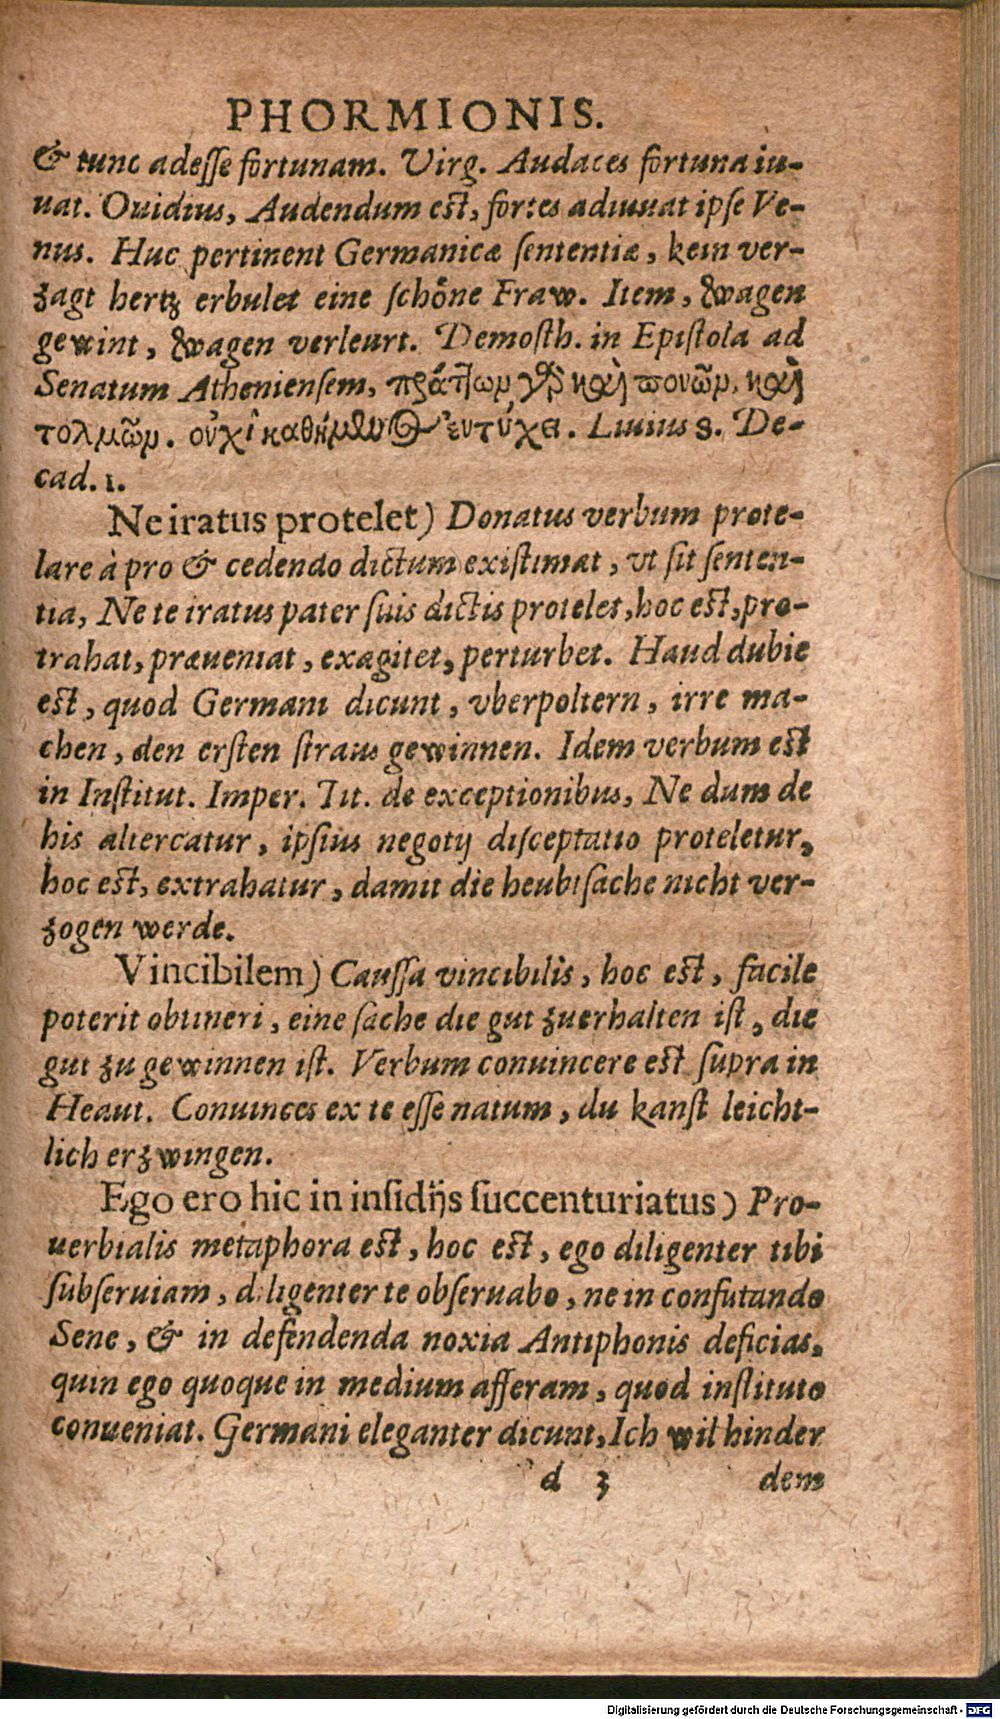 PHORMIONIS.
& tunc adesse fortunam. Virg. Audaces fortuna iu-
uat. Ouidius, Audendum est, fortes adiuuat ipse Ve-
nus. Huc pertinent Germanicæ sententiæ, kein ver-
zagt hertz erbulet eine schöne Fraw. Item, wagen
gewint, wagen verleurt. Demosth. in Epistola ad
Senatum Atheniensem, πράττων γὰρ καὶ πονῶν, καὶ
τολμῶν. οὐχὶ καθήμενος εὐτύχει. Liuius 8. De-
cad. 1.
Ne iratus protelet) Donatus verbum prote-
lare à pro & cedendo dictum existimat, vt sit senten-
tia, Ne te iratus pater suis dictis protelet, hoc est, pro-
trahat, præueniat, exagitet, perturbet. Haud dubie
est, quod Germani dicunt, vberpoltern, irre ma-
chen, den ersten straus gewinnen. Idem verbum est
in Institut. Imper. Tit. de exceptionibus, Ne dum de
his altercatur, ipsius negotij disceptatio proteletur,
hoc est, extrahatur, damit die heubtsache nicht ver-
zogen werde.
Vincibilem) Caussa vincibilis, hoc est, facile
poterit obtineri, eine sache die gut zuerhalten ist, die
gut zu gewinnen ist. Verbum conuincere est supra in
Heaut. Conuinces ex te esse natum, du kanst leicht-
lich erzwingen.
Ego ero hic in insidijs succenturiatus) Pro-
uerbialis metaphora est, hoc est, ego diligenter tibi
subseruiam, diligenter te obseruabo, ne in confutando
Sene, & in defendenda noxia Antiphonis deficias,
quin ego quoque in medium afferam, quod instituto
conueniat. Germani eleganter dicunt, Ich wil hinder
d 3 dem
Digitalisierung gefördert durch die Deutsche Forschungsgemeinschaft - DFG